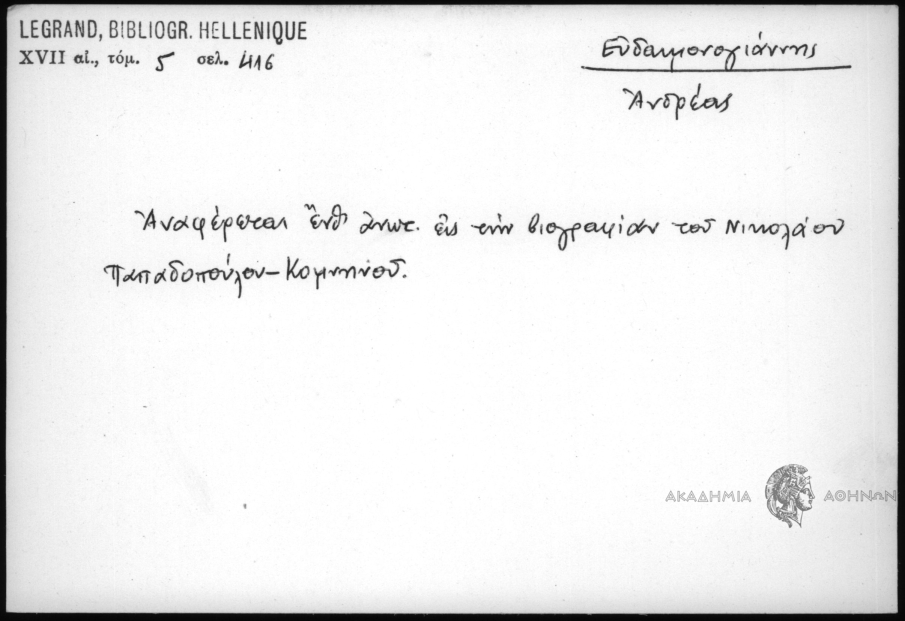 LEGRAND, BIBLIOGR. HELLENIQUE
XVII αἰ., τόμ. 5 σελ. 416
Εὐδαιμονογιάννης
Ἀνδρέας
Ἀναφέρεται ἔνθ' ἀνωτ. εἰς τὴν βιογραφίαν τοῦ Νικολάου
Παπαδοπούλου-Κομνηνοῦ.
ΑΚΑΔΗΜΙΑ ΑΘΗΝΩΝ